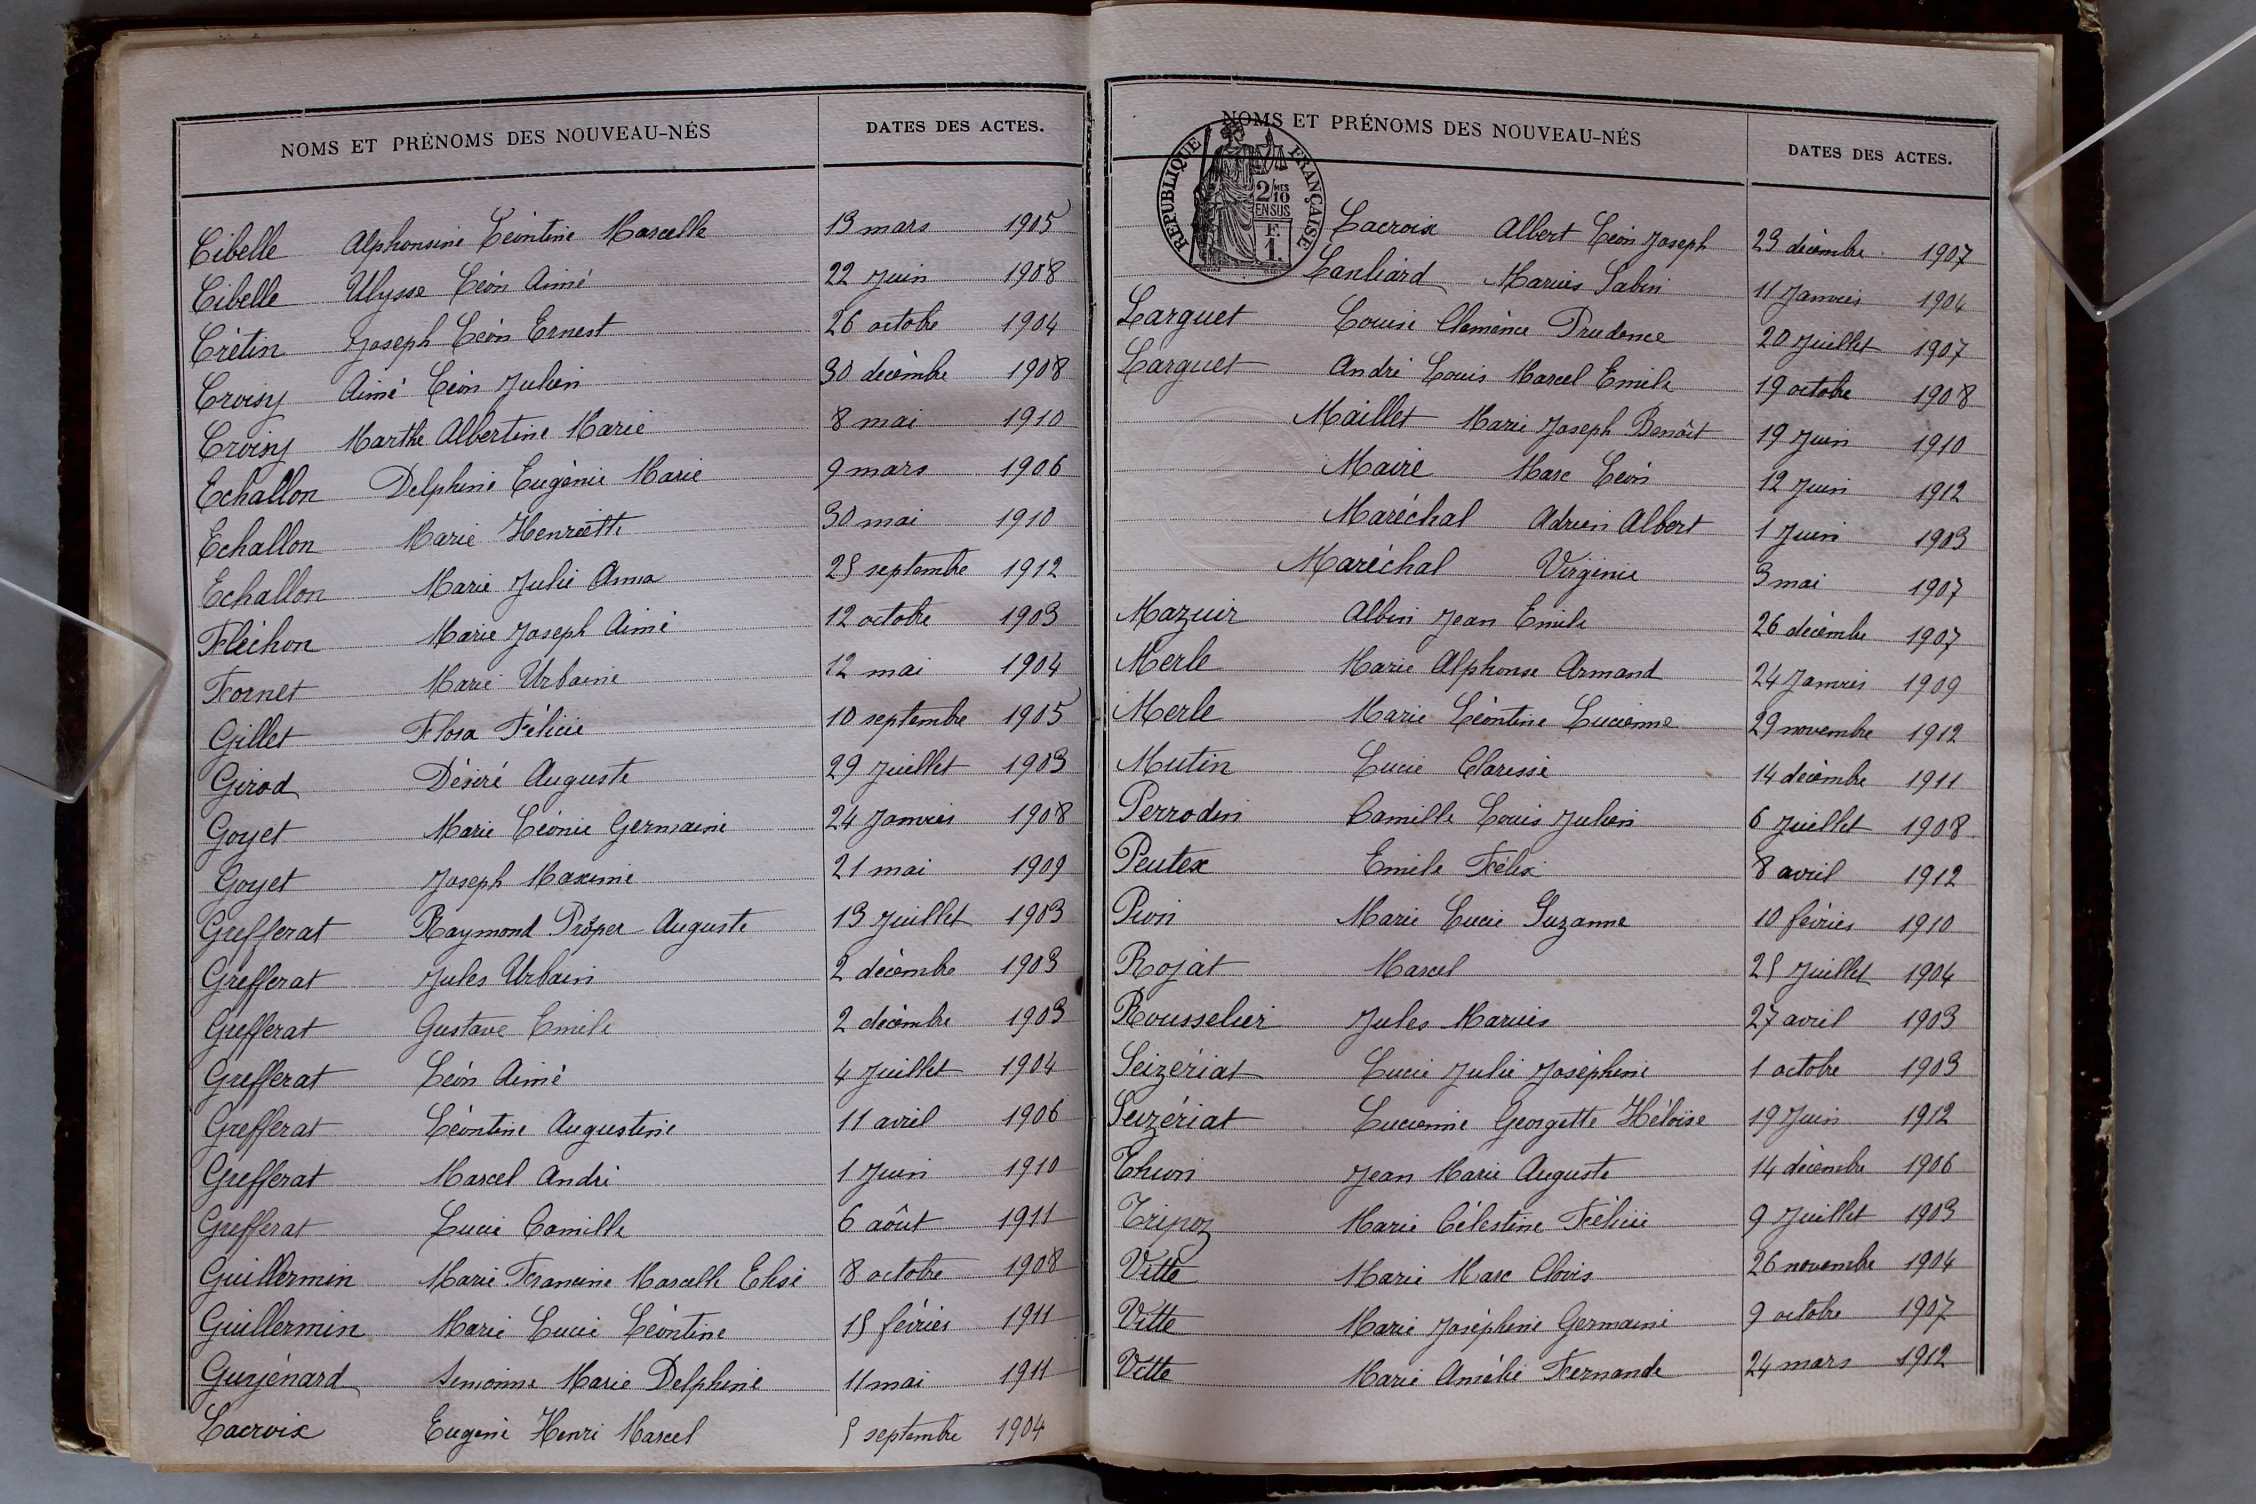 NOMS ET PRÉNOMS DES NOUVEAU-NÉS DATES DES ACTES.
Cibelle Alphonsine Léontine Marcelle 13 mars 1905
Cibelle Ulysse Léon Aimé 22 Juin 1908
Crétin Joseph Léon Ernest 26 octobre 1904
Croisy Aimé Léon Julien 30 décembre 1908
Croisy Marthe Albertine Marie 8 mai 1910
Echallon Delphine Eugénie Marie 9 mars 1906
Echallon Marie Henriette 30 mai 1910
Echallon Marie Julie Anna 25 septembre 1912
Fléchon Marie Joseph Aimé 12 octobre 1903
Fornet Marie Urbaine 12 mai 1904
Gillet Flora Félicie 10 septembre 1905
Girod Désiré Auguste 29 Juillet 1903
Goyet Marie Léonie Germaine 24 Janvier 1908
Goyet Joseph Maxime 21 mai 1909
Grefferat Raymond Prosper Auguste 13 Juillet 1903
Grefferat Jules Urbain 2 décembre 1903
Grefferat Gustave Emile 2 décembre 1903
Grefferat Léon Aimé 4 Juillet 1904
Grefferat Léontine Augustine 11 avril 1906
Grefferat Marcel André 1 Juin 1910
Grefferat Lucie Camille 6 août 1911
Guillermin Marie Francine Marcelle Elise 8 octobre 1908
Guillermin Marie Lucie Léontine 15 février 1911
Guyénard Simonne Marie Delphine 11 mai 1911
Lacroix Eugène Henri Marcel 5 septembre 1904
NOMS ET PRÉNOMS DES NOUVEAU-NÉS DATES DES ACTES.
RÉPUBLIQUE FRANÇAISE
2/10 MES
EN SUS
F.
1.
Lacroix Albert Léon Joseph 23 décembre 1907
Lanliard Marius Sabin 11 Janvier 1904
Larguet Louise Clémence Prudence 20 Juillet 1907
Larguet André Louis Marcel Emile 19 octobre 1908
Maillet Marie Joseph Benoît 19 Juin 1910
Maire Marc Léon 12 Juin 1912
Maréchal Adrien Albert 1 Juin 1903
Maréchal Virginie 3 mai 1907
Mazuir Albin Jean Emile 26 décembre 1907
Merle Marie Alphonse Armand 24 Janvier 1909
Merle Marie Léontine Lucienne 29 novembre 1912
Mutin Lucie Clarisse 14 décembre 1911
Perrodin Camille Louis Julien 6 Juillet 1908
Peutex Emile Félix 8 avril 1912
Pion Marie Lucie Suzanne 10 février 1910
Rojat Marcel 25 Juillet 1904
Rousselier Jules Marius 27 avril 1903
Seizériat Lucie Julie Joséphine 1 octobre 1903
Seizériat Lucienne Georgette Héloïse 19 Juin 1912
Thion Jean Marie Auguste 14 décembre 1906
Tripoz Marie Célestine Félicie 9 Juillet 1903
Vitte Marie Marc Clovis 26 novembre 1904
Vitte Marie Joséphine Germaine 9 octobre 1907
Vitte Marie Amélie Fernande 24 mars 1912